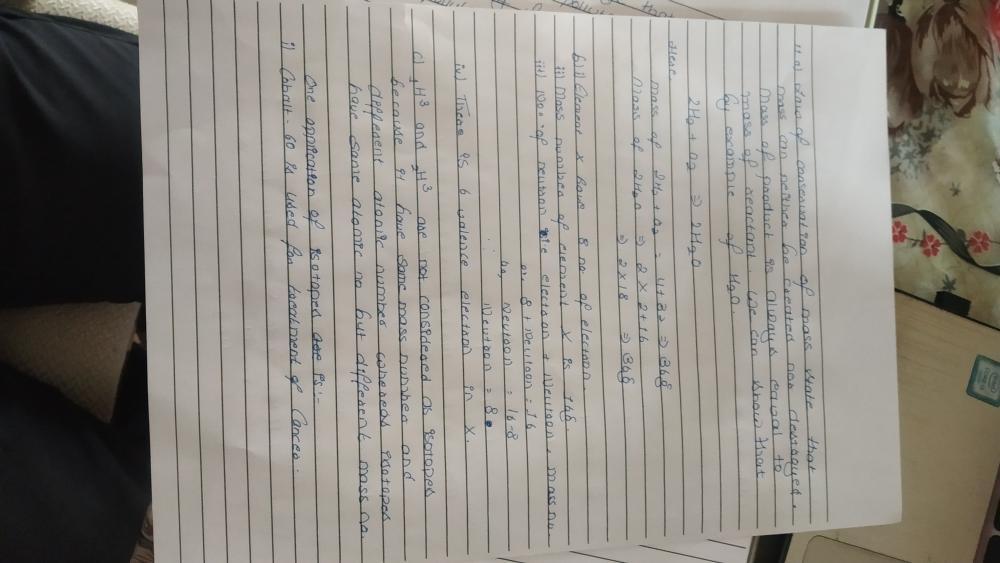 11. a) Law of conservation of mass state that
mass can neither be created nor destroyed.
Mass of product is always equal to
mass of reactant. We can show that
by example of H₂O.
2H₂ + O₂ ⇒ 2H₂O
Here
mass of 2H₂ + O₂ = 4+32 ⇒ 36g
Mass of 2H₂O ⇒ 2×2+16
⇒ 2×18 ⇒ 36g
b) i) Element X have 8 no of electron
ii) Mass number of element X is 16g.
iii) No. of neutron electron + Neutron = mass no.
or, 8 + Neutron = 16
or, Neutron = 16-8
∴ Neutron = 8.
iv) There is 6 valence electron in X.
c) ₁H³ and ₂H³ are not considered as isotopes
because it have same mass number and
different atomic number whereas isotopes
have same atomic no but different mass no.
One application of isotopes is:-
i) Cobalt-60 is used for treatment of Cancer.